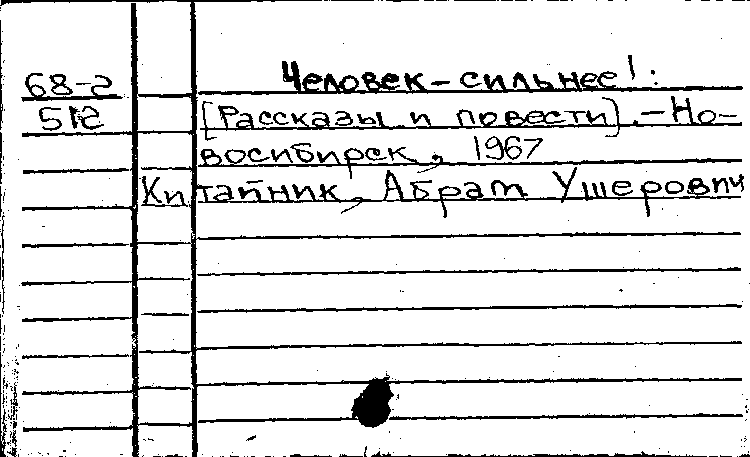 68-2 Человек-сильнее!:
512 [Рассказы и повести].-Но-
восибирск, 1967
Китайник, Абрам Ушерович